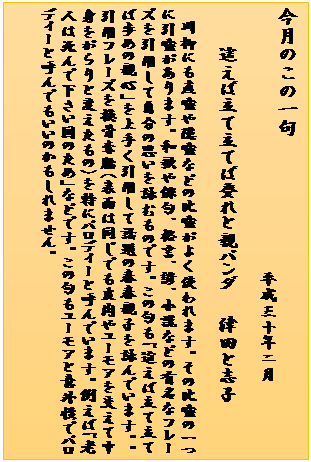 今月のこの一句
平成三十年二月
這えば立て立てば愛れと親パンダ　律田と志子
川柳にも直喩や隠喩などの比喩がよく使われます。その比喩の一つ
に引喩があります。和歌や俳句、格言、詩、小説などの有名なフレー
ズを引用して自分の思いを詠むものです。この句も「這えば立て立て
ば歩めの親心」を上手く引用して話題の春春親子を詠んでいます。。
引用フレーズを換骨奪胎（表面は同じでも皮肉やユーモアを交えて中
身をがらりと変えたもの）を特にパロディーと呼んでいます。例えば「老
人は死んで下さい国のため」などです。この句もユーモアと意外性でパロ
ディーと呼んでもいいのかもしれません。